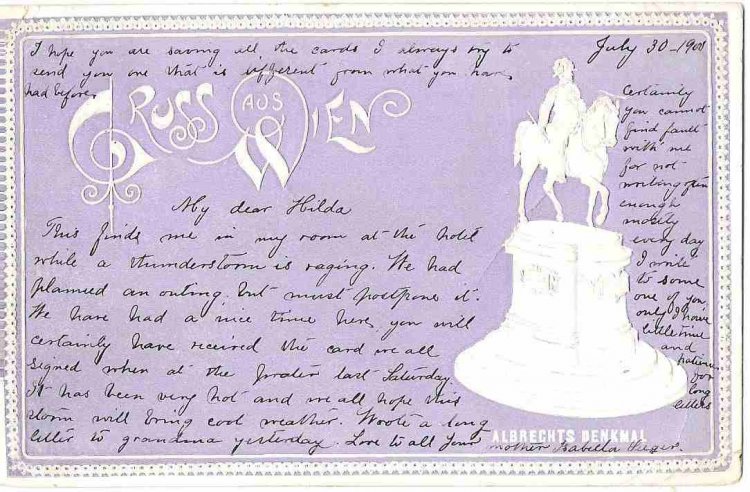 July 30-1901
I hope you are saving all the cards I always try to
send you one that is different from what you have
had before.
GRUSS AUS WIEN
My dear Hilda
This finds me in my room at the hotel
while a thunderstorm is raging. We had
planned an outing but must postpone it.
We have had a nice time here, you will
certainly have received the card we all
signed when at the Prater last Saturday.
It has been very hot and we all hope this
storm will bring cool weather. Wrote a long
letter to grandma yesterday. Love to all Your mother Isabella
Certainly
you cannot
find fault
with me
for not
writing often
enough
mostly
every day
I write
to some
one of you,
only I have
little time
and
patience
for
long
letters
ALBRECHTS DENKMAL